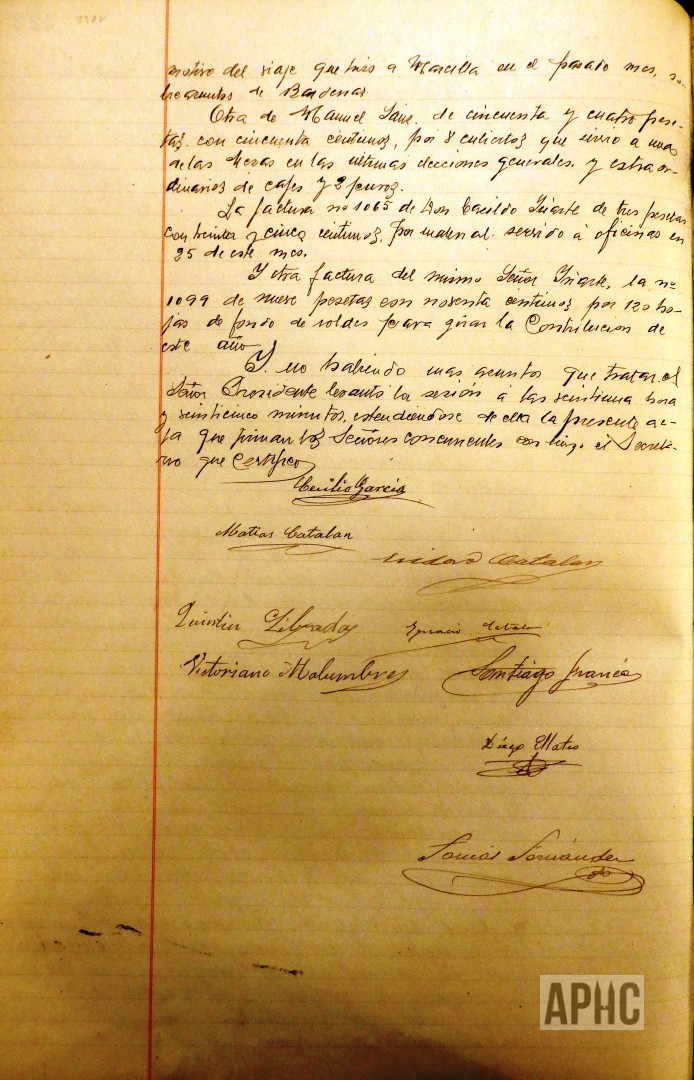 motivo del viaje que hizo a Marcilla en el pasado mes, so-
bre asuntos de Bardenas
Otra de Manuel Sainz, de cincuenta y cuatro pese-
tas con cincuenta centimos, por 8 cubiertos que sirvio a unas
de las Mesas en las ultimas elecciones generales, y extraor-
dinarios de cafes y 2 puros.
La factura nº 1065 de Don Casildo Iriarte de tres pesetas
con treinta y cinco centimos, por material servido à oficinas en
25 de este mes.
Y otra factura del mismo Señor Iriarte, la nº
1099 de nueve pesetas con nosenta centimos por 120 ho-
jas de fondo de para girar la Contribucion de
este año
Y no habiendo mas asuntos que tratar, el
Señor Presidente levantó la sesión á las hora
y veinticinco minutos, estendiendose de ella la presente ac-
ta que firman los Señores concurrentes conmigo el Secreta-
rio que Certifico
Cecilio Garcia
Matias Catalan
Isidoro Catalan
Quintin
Ignacio Catalan
Victoriano Malumbres
Santiago Francés
Diego Mateo
Tomás Fernández
APHC